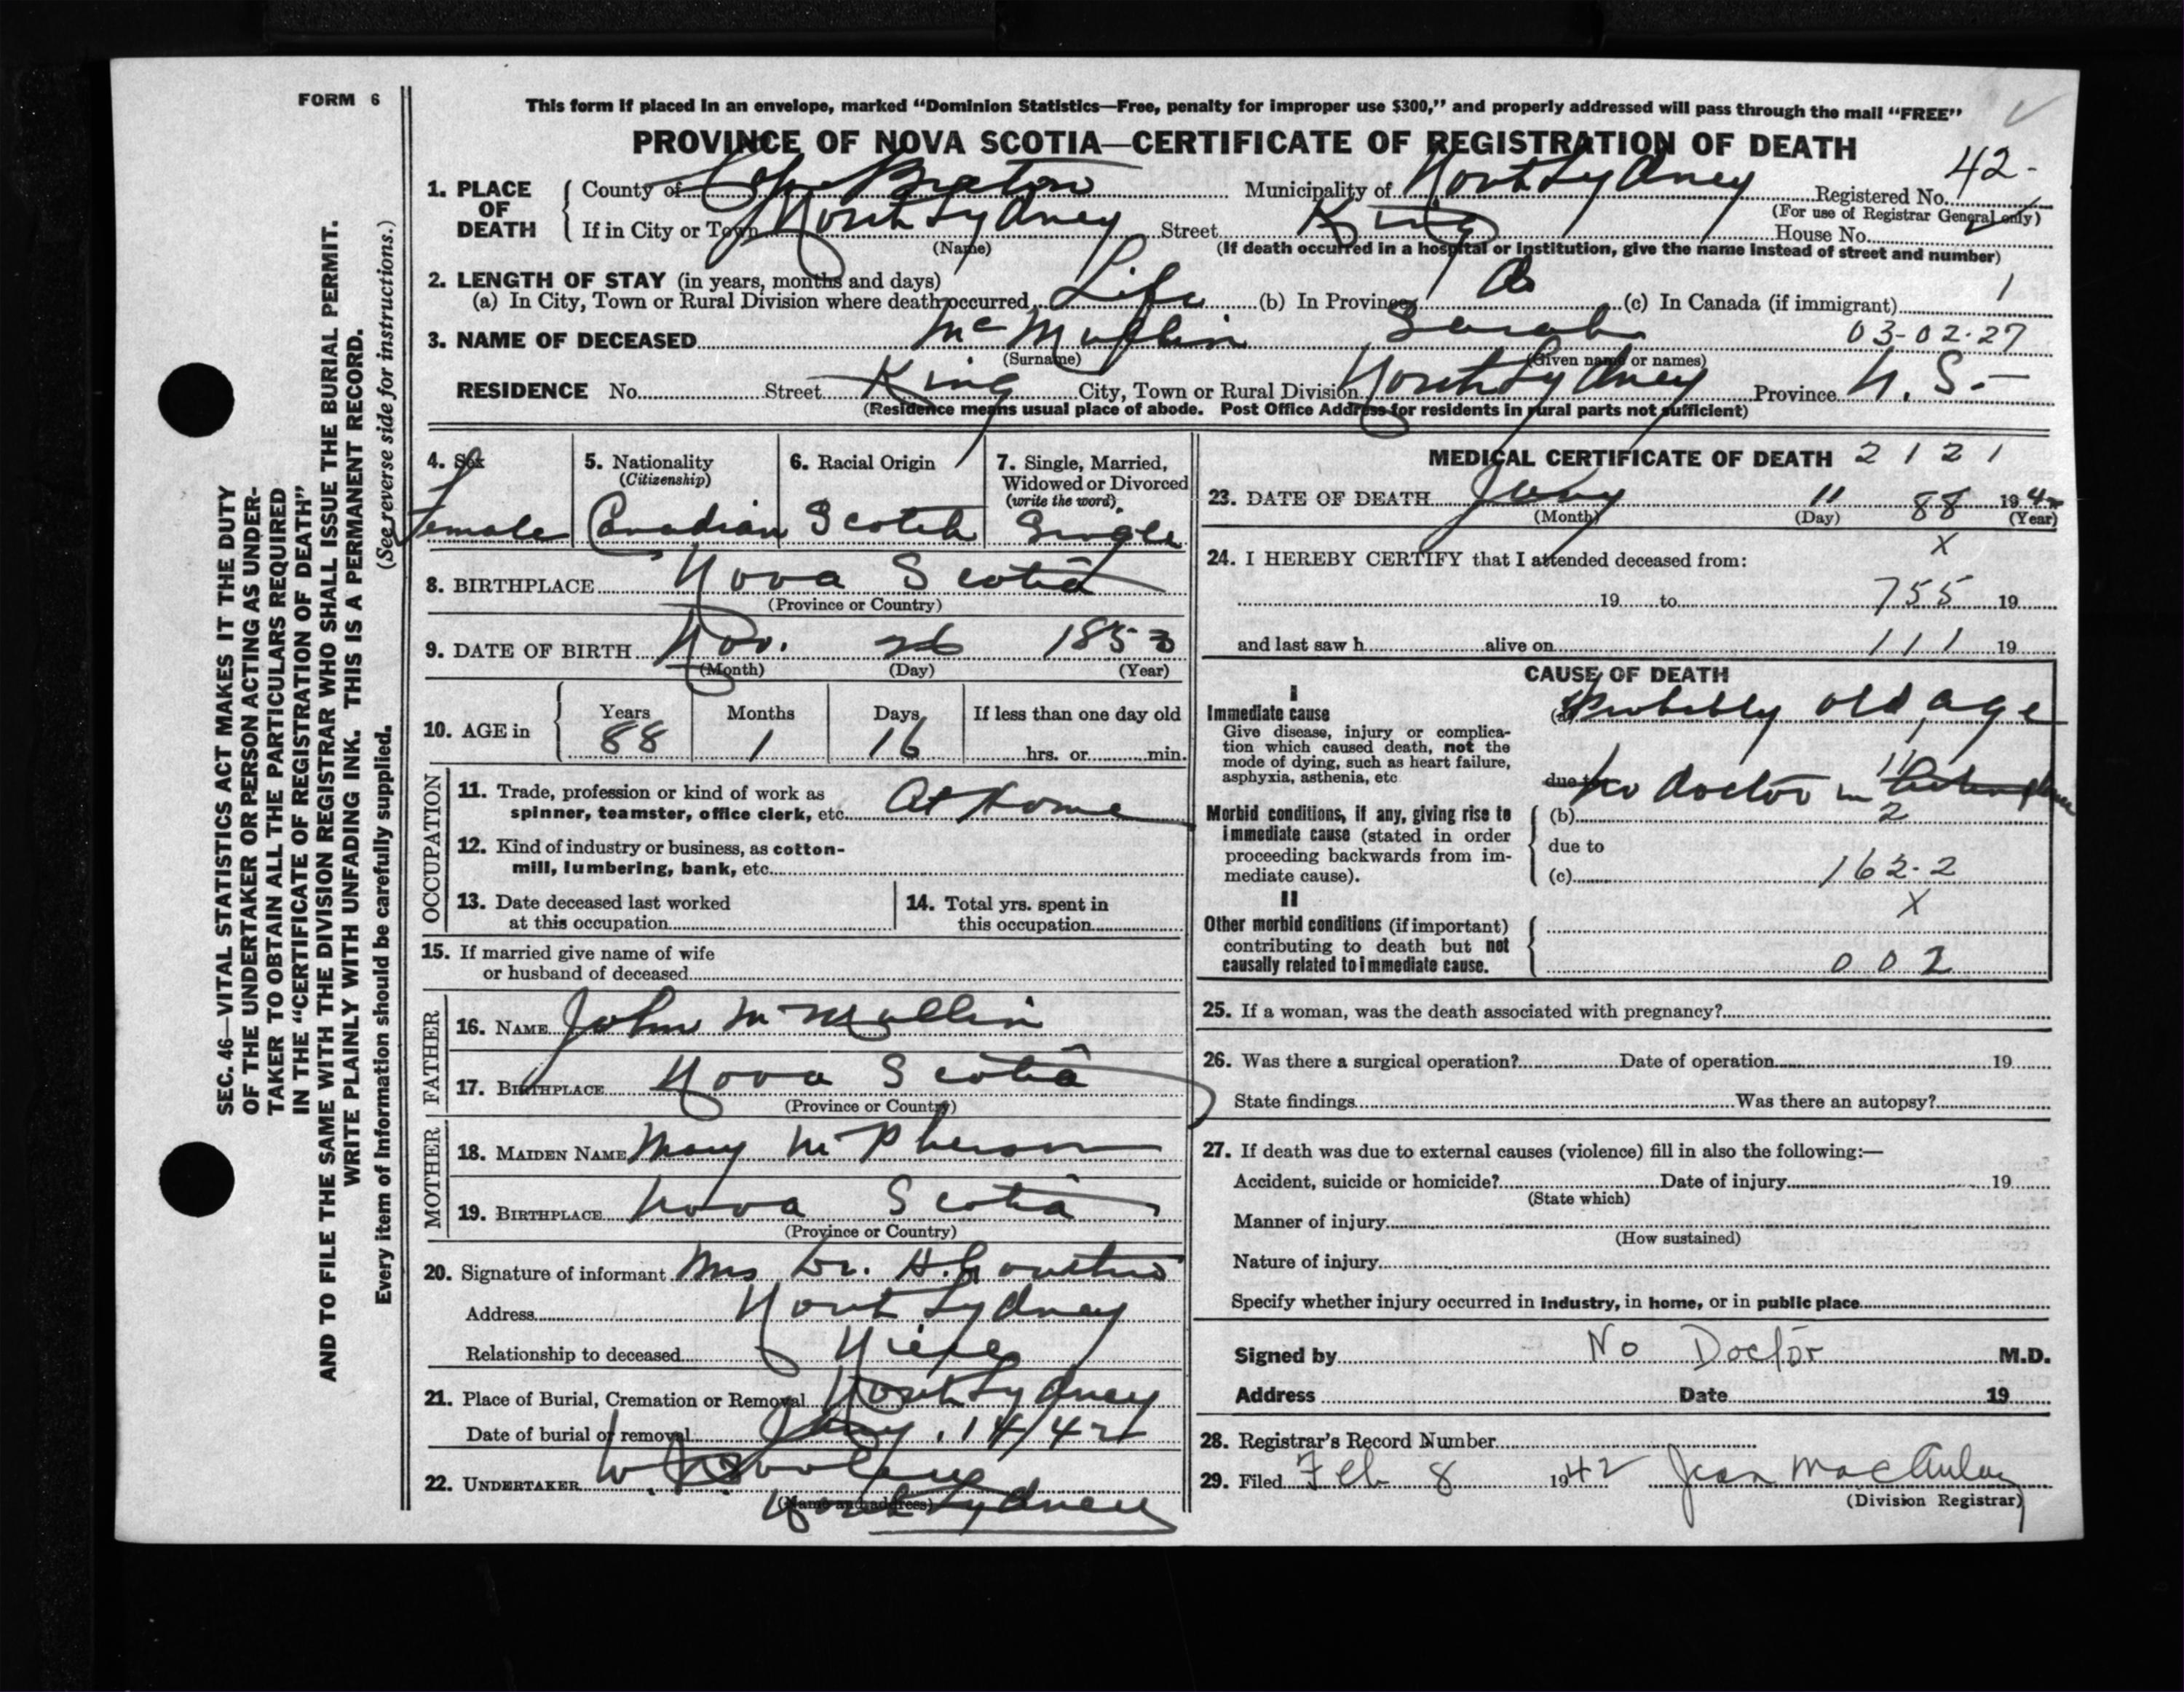 FORM 6
This form if placed in an envelope, marked “Dominion Statistics—Free, penalty for improper use $300,” and properly addressed will pass through the mail “FREE”
PROVINCE OF NOVA SCOTIA—CERTIFICATE OF REGISTRATION OF DEATH
1. PLACE OF DEATH
County of Cape Breton Municipality of North Sydney Registered No. 42-
(For use of Registrar General only)
If in City or Town North Sydney Street King House No.
(Name) (If death occurred in a hospital or institution, give the name instead of street and number)
2. LENGTH OF STAY (in years, months and days)
(a) In City, Town or Rural Division where death occurred Life (b) In Province (c) In Canada (if immigrant) 1
3. NAME OF DECEASED McMullin Sarah 03-02-27
(Surname) (Given name or names)
RESIDENCE No. Street King City, Town or Rural Division North Sydney Province N. S.-
(Residence means usual place of abode. Post Office Address for residents in rural parts not sufficient)
4. Sex
Female
5. Nationality
(Citizenship)
Canadian
6. Racial Origin
Scotch
7. Single, Married,
Widowed or Divorced
(write the word)
Single
8. BIRTHPLACE Nova Scotia
(Province or Country)
9. DATE OF BIRTH Nov. 26 1853
(Month) (Day) (Year)
10. AGE in
Years Months Days If less than one day old
88 1 16 hrs. or min.
OCCUPATION
11. Trade, profession or kind of work as
spinner, teamster, office clerk, etc. At Home
12. Kind of industry or business, as cotton-
mill, lumbering, bank, etc.
13. Date deceased last worked
at this occupation
14. Total yrs. spent in
this occupation
15. If married give name of wife
or husband of deceased
FATHER
16. NAME John McMullin
17. BIRTHPLACE Nova Scotia
(Province or Country)
MOTHER
18. MAIDEN NAME Mary McPherson
19. BIRTHPLACE Nova Scotia
(Province or Country)
20. Signature of informant Mrs Dr. H.
Address North Sydney
Relationship to deceased Niece
21. Place of Burial, Cremation or Removal North Sydney
Date of burial or removal Jany. 14/42
22. UNDERTAKER
(Name and address)
North Sydney
MEDICAL CERTIFICATE OF DEATH 2121
23. DATE OF DEATH Jany 11 88 1942
(Month) (Day) (Year)
x
24. I HEREBY CERTIFY that I attended deceased from:
19 to 755 19
and last saw h alive on 111 19
CAUSE OF DEATH
I
Immediate cause
Give disease, injury or complica-
tion which caused death, not the
mode of dying, such as heart failure,
asphyxia, asthenia, etc
(a) Probably old age
11
due to No doctor in
Morbid conditions, if any, giving rise to
immediate cause (stated in order
proceeding backwards from im-
mediate cause).
(b) 2
due to
(c) 162-2
X
II
Other morbid conditions (if important)
contributing to death but not
causally related to immediate cause.
002
25. If a woman, was the death associated with pregnancy?
26. Was there a surgical operation? Date of operation 19
State findings Was there an autopsy?
27. If death was due to external causes (violence) fill in also the following:—
Accident, suicide or homicide? Date of injury 19
(State which)
Manner of injury
(How sustained)
Nature of injury
Specify whether injury occurred in industry, in home, or in public place
Signed by No Doctor M.D.
Address Date 19
28. Registrar's Record Number
29. Filed Feb 8 1942 Jean MacAulay
(Division Registrar)
SEC. 46—VITAL STATISTICS ACT MAKES IT THE DUTY
OF THE UNDERTAKER OR PERSON ACTING AS UNDER-
TAKER TO OBTAIN ALL THE PARTICULARS REQUIRED
IN THE “CERTIFICATE OF REGISTRATION OF DEATH”
AND TO FILE THE SAME WITH THE DIVISION REGISTRAR WHO SHALL ISSUE THE BURIAL PERMIT.
WRITE PLAINLY WITH UNFADING INK. THIS IS A PERMANENT RECORD.
Every item of information should be carefully supplied. (See reverse side for instructions.)